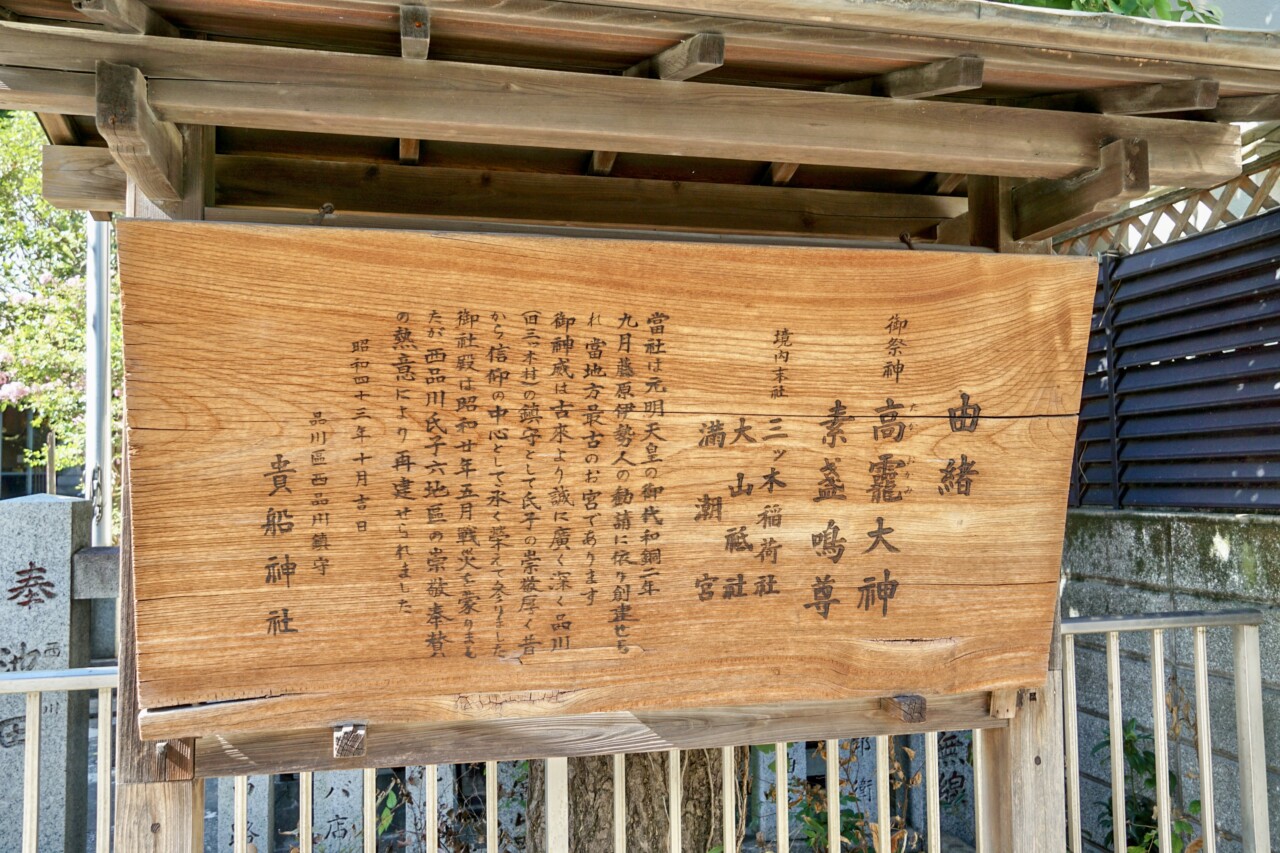 由緒
御祭神 高龗大神
たか おかみ
素盞鳴尊
境内末社 三ッ木稲荷社
大山祗社
満潮宮
當社は元明天皇の御代和銅二年
九月藤原伊勢人の勧請に依り創建せら
れ當地方最古のお宮であります
御神威は古来より誠に廣く深く品川
(旧三ッ木村)の鎮守として氏子の崇敬厚く昔
から信仰の中心として永く栄えて参りました
御社殿は昭和廿年五月戦災を蒙りまし
たが西品川氏子六地區の崇敬奉賛
の熱意により再建せられました
昭和四十三年十月吉日
品川區西品川鎮守
貴船神社
奉
西
川
八店
無線